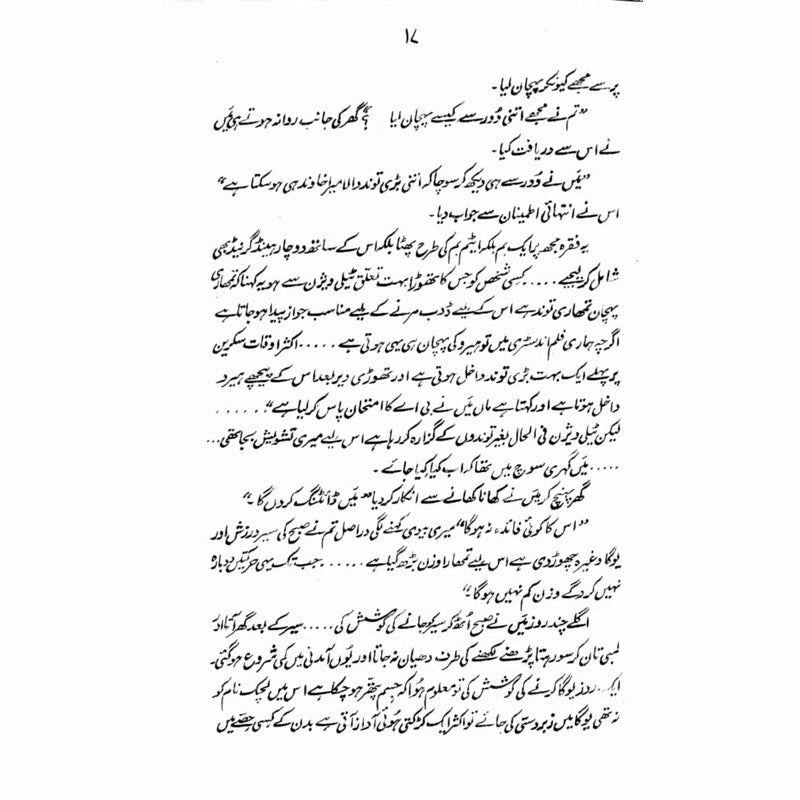 ۱۷
پر سے مجھے کیونکر پہچان لیا۔
”تم نے مجھے اتنی دُور سے کیسے پہچان لیا؟“ گھر کی جانب روانہ ہوتے ہی میَں
نے اس سے دریافت کیا۔
”میَں نے دُور سے ہی دیکھ کر سوچا کہ اتنی بڑی توند والا میرا خاوند ہی ہو سکتا ہے“
اس نے انتہائی اطمینان سے جواب دیا۔
یہ فقرہ مجھ پر ایک بم بلکہ ایٹم بم کی طرح پھٹا بلکہ اس کے ساتھ دو چار ہینڈ گرنیڈ بھی
شامل کر لیجیے ..... کسی شخص کو جس کا تھوڑا بہت تعلق ٹیلی ویژن سے ہو یہ کہنا کہ تمھاری
پہچان تمھاری توند ہے اس کے لیے ڈوب مرنے کے لیے مناسب جواز پیدا ہو جاتا ہے
اگرچہ ہماری فلم انڈسٹری میں تو ہیرو کی پہچان ہی یہی ہوتی ہے ..... اکثر اوقات سکرین
پر پہلے ایک بہت بڑی توند داخل ہوتی ہے اور تھوڑی دیر بعد اس کے پیچھے ہیرو
داخل ہوتا ہے اور کہتا ہے ماں میَں نے بی اے کا امتحان پاس کر لیا ہے“ .....
لیکن ٹیلی ویژن فی الحال بغیر توندوں کے گزارہ کر رہا ہے اس لیے میری تشویش بجا تھی ...
..... میَں گہری سوچ میں تھا کہ اب کیا کِیا جائے۔
گھر پہنچ کر میَں نے کھانا کھانے سے انکار کر دیا ”میَں ڈائٹنگ کروں گا۔“
”اس کا کوئی فائدہ نہ ہو گا“ میری بیوی کہنے لگی دراصل تم نے صبح کی سیر ورزش اور
یوگا وغیرہ چھوڑ دی ہے اس لیے تمھارا وزن بڑھ گیا ہے ..... جب تک یہی حرکتیں دوبارہ
نہیں کرو گے وزن کم نہیں ہو گا۔“
اگلے چند روز میَں نے صبح اُٹھ کر سیر کو جانے کی کوشش کی ..... سیر کے بعد گھر آتا اور
لمبی تان کر سو رہتا پڑھنے لکھنے کی طرف دھیان نہ جاتا اور یوں آمدنی میں کمی شروع ہو گئی۔
ایک روز یوگا کرنے کی کوشش کی تو معلوم ہُوا کہ جسم پتھر ہو چکا ہے اس میں لچک نام کو
نہ تھی یوگا میں زبردستی کی جائے تو اکثر ایک کڑکتی ہُوئی آواز آتی ہے بدن کے کسی حصّے میں